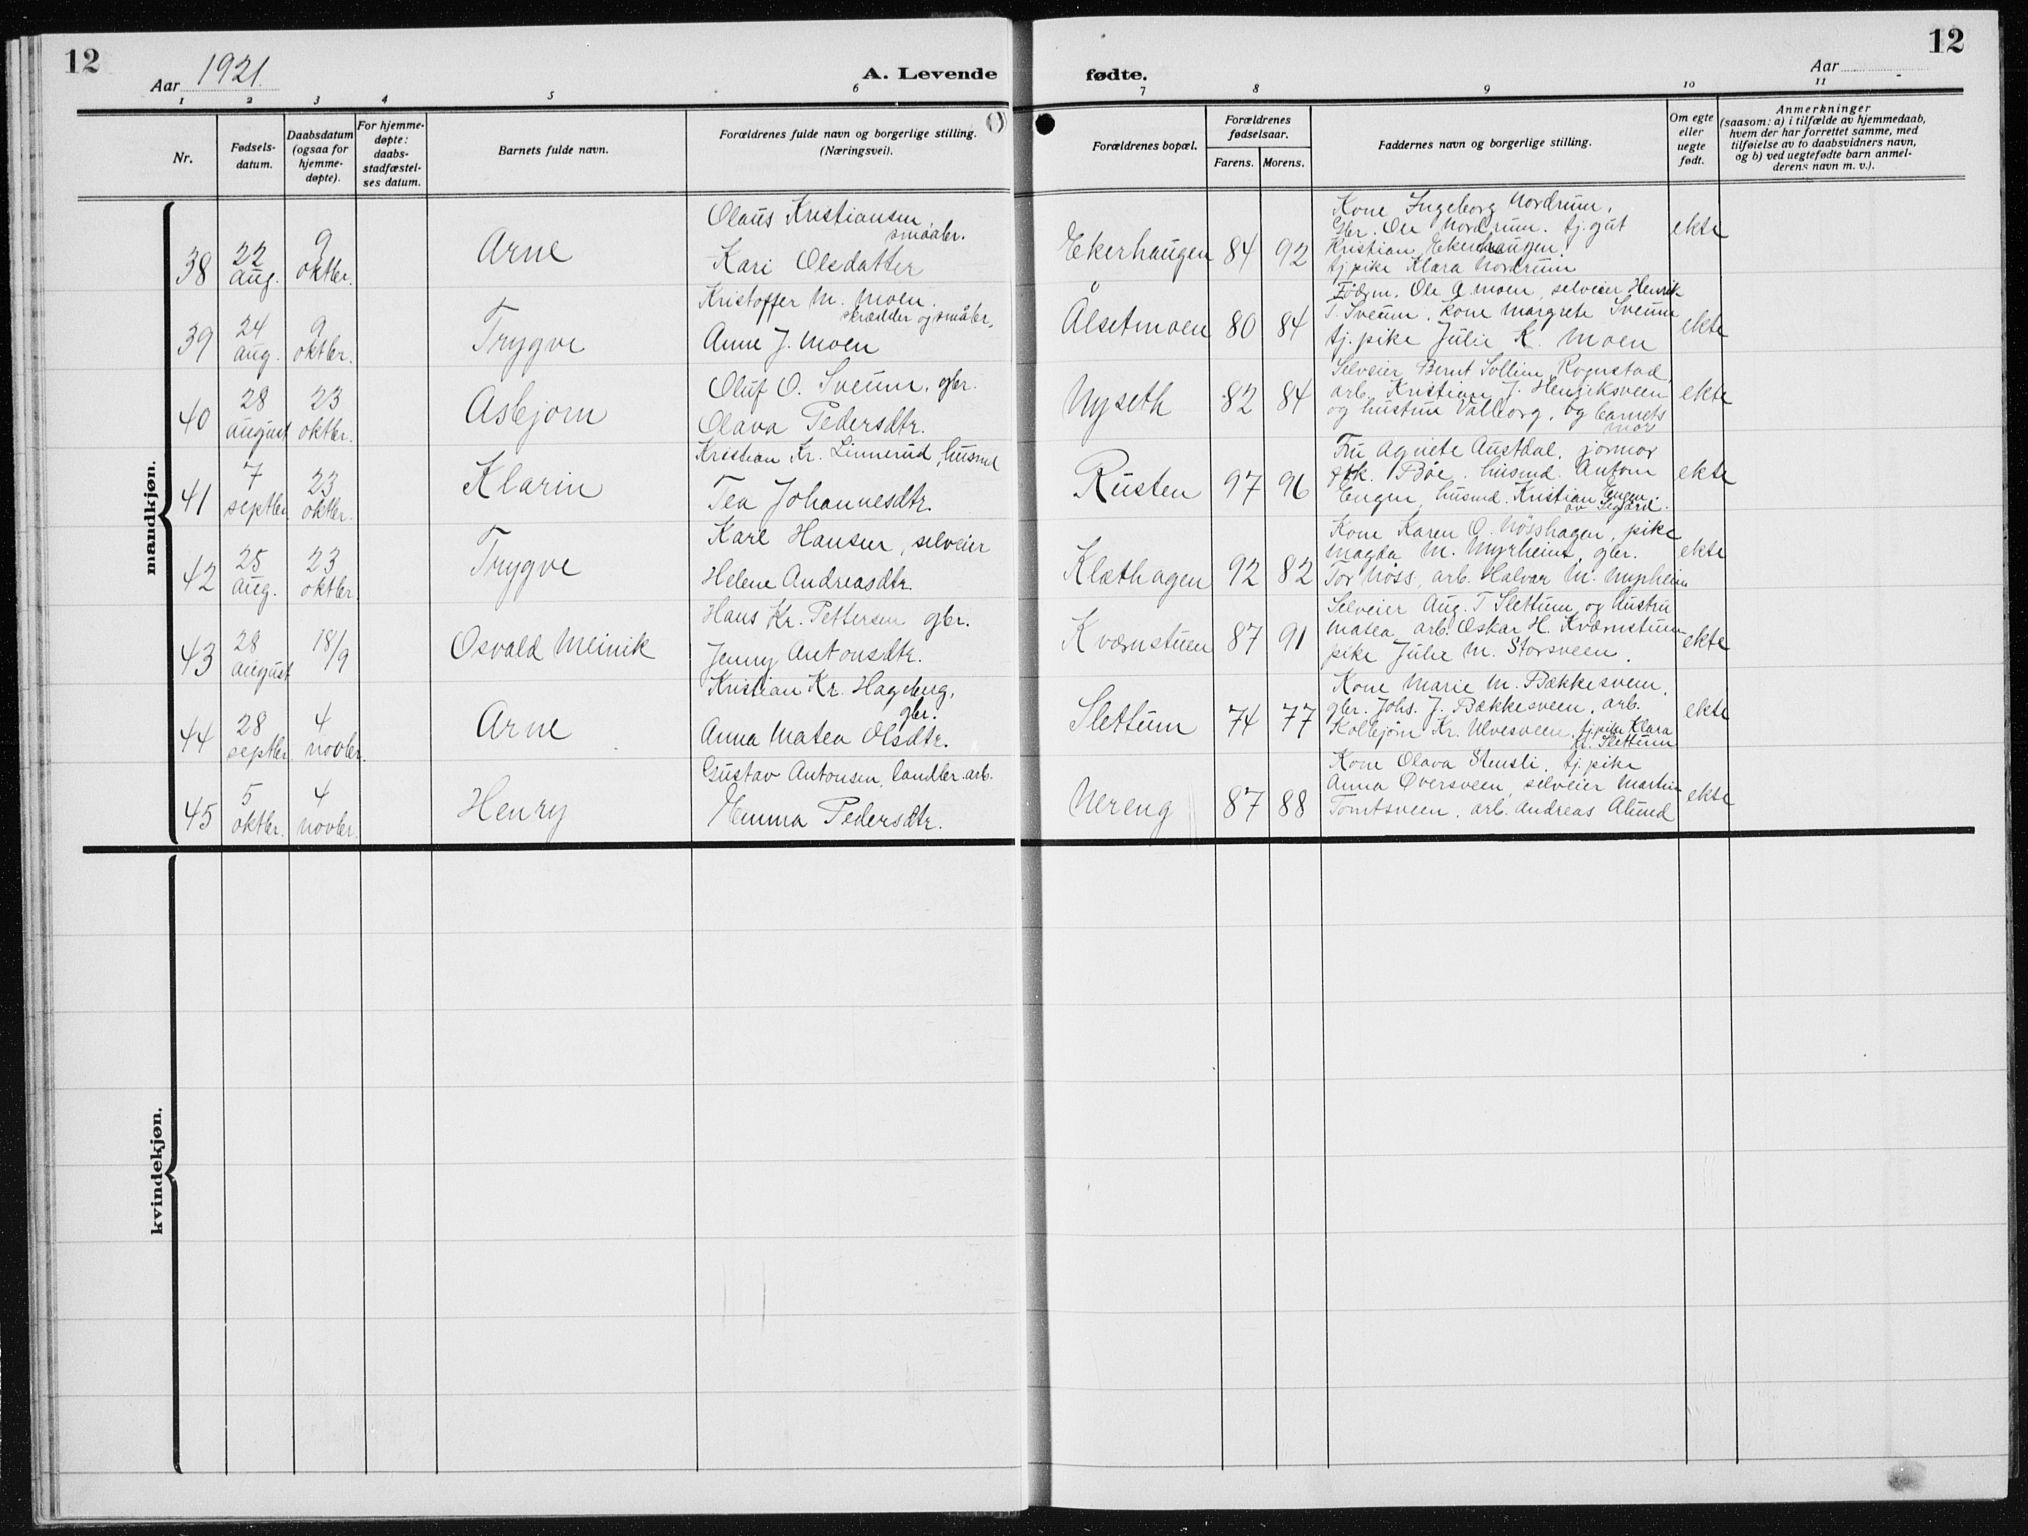 12
Aar 1921.
A. Levende fødte.
Aar
12
1 2 3 4 5 6 7 8 9 10 11
Nr.
Fødsels-
datum.
Daabsdatum
(ogsaa for
hjemme-
døpte).
For hjemme-
døpte:
daabs-
stadfæstel-
ses datum.
Barnets fulde navn.
Forældrenes fulde navn og borgerlige stilling.
(Næringsvei).
Forældrenes bopæl.
Forældrenes
fødselsaar.
Farens. Morens.
Faddernes navn og borgerlige stilling.
Om egte
eller
uegte
født.
Anmerkninger
(saasom: a) i tilfælde av hjemmedaab,
hvem der har forrettet samme, med
tilføielse av to daabsvidners navn,
og b) ved uegtefødte barn anmel-
derens navn m. v.).
mandkjøn.
38
22
aug.
9
oktbr.
Arne
Olaus Kristiansen,
smaabr.
Kari Olsdatter
Ekerhaugen 84 92
Kone Ingeborg Nordrum,
Gbr. Ole Nordrum. tj.gut
Kristian Ekerhaugen.
tj.pike Klara Nordrum
ekte
39
24
aug.
9
oktbr.
Trygve
Kristoffer M. Moen.
skrædder og småbr.
Anne J. Moen
Ålsetmoen 80 84
Føderm. Ole A. Moen, selveier Henrik
T. Sveum, kone Margrete Sveum
tj. pike Julie K. Moen
ekte
40
28
august
23
oktbr.
Asbjørn
Oluf O. Sveum, gbr.
Olava Pedersdtr.
Nyseth 82 84
Selveier Bernt Sollien Rognstad,
arb. Kristian J. Henriksveen
og hustru Valborg, og barnets
mor
ekte
41
7
septbr.
23
oktbr.
Klarin
Kristian Kr. Linnerud, husmd
Tea Johannesdtr.
Rusten 97 96
Fru Agnete Austdal, jormor
frk. Bøe, husmd. Anton
Engen, husmd. Kristian Engen.
ekte
42
25
aug.
23
oktbr.
Trygve
Karl Hansen, selveier
Helene Andreasdtr.
Klæthagen 92 82
Kone Karen O. Nösshagen, pike
Magda M. Myrheim, gbr.
Tor Nöss, arb. Halvar M. Myrheim
ekte
43
28
august
18/9
Osvald Meinik
Hans Kr. Pettersen gbr.
Jenny Antonsdtr.
Kværnstuen 87 91
Selveier Aug. T Slettum og hustru
Matea, arb. Oskar H. Kværnstuen
pike Julie M. Storsveen.
ekte
44
28
septbr.
4
novbr.
Arne
Kristian Kr. Hageberg,
gbr.
Anna Matea Olsdtr.
Slettum 74 77
Kone Marie M. Bækkesveen,
gbr. Johs. J. Bækkesveen, arb.
Kolbjørn Kr. Ulvesveen, tj.pike Klara
Kr. Slettum
ekte
45
5
oktbr.
4
novbr.
Henry
Gustav Antonsen, landbr. arb.
Emma Pedersdtr.
Nereng 87 88
Kone Olava Stensli, tj.pike
Anna Øversveen, selveier Martin
Tomtsveen, arb. Andreas Alund
ekte
kvindekjøn.